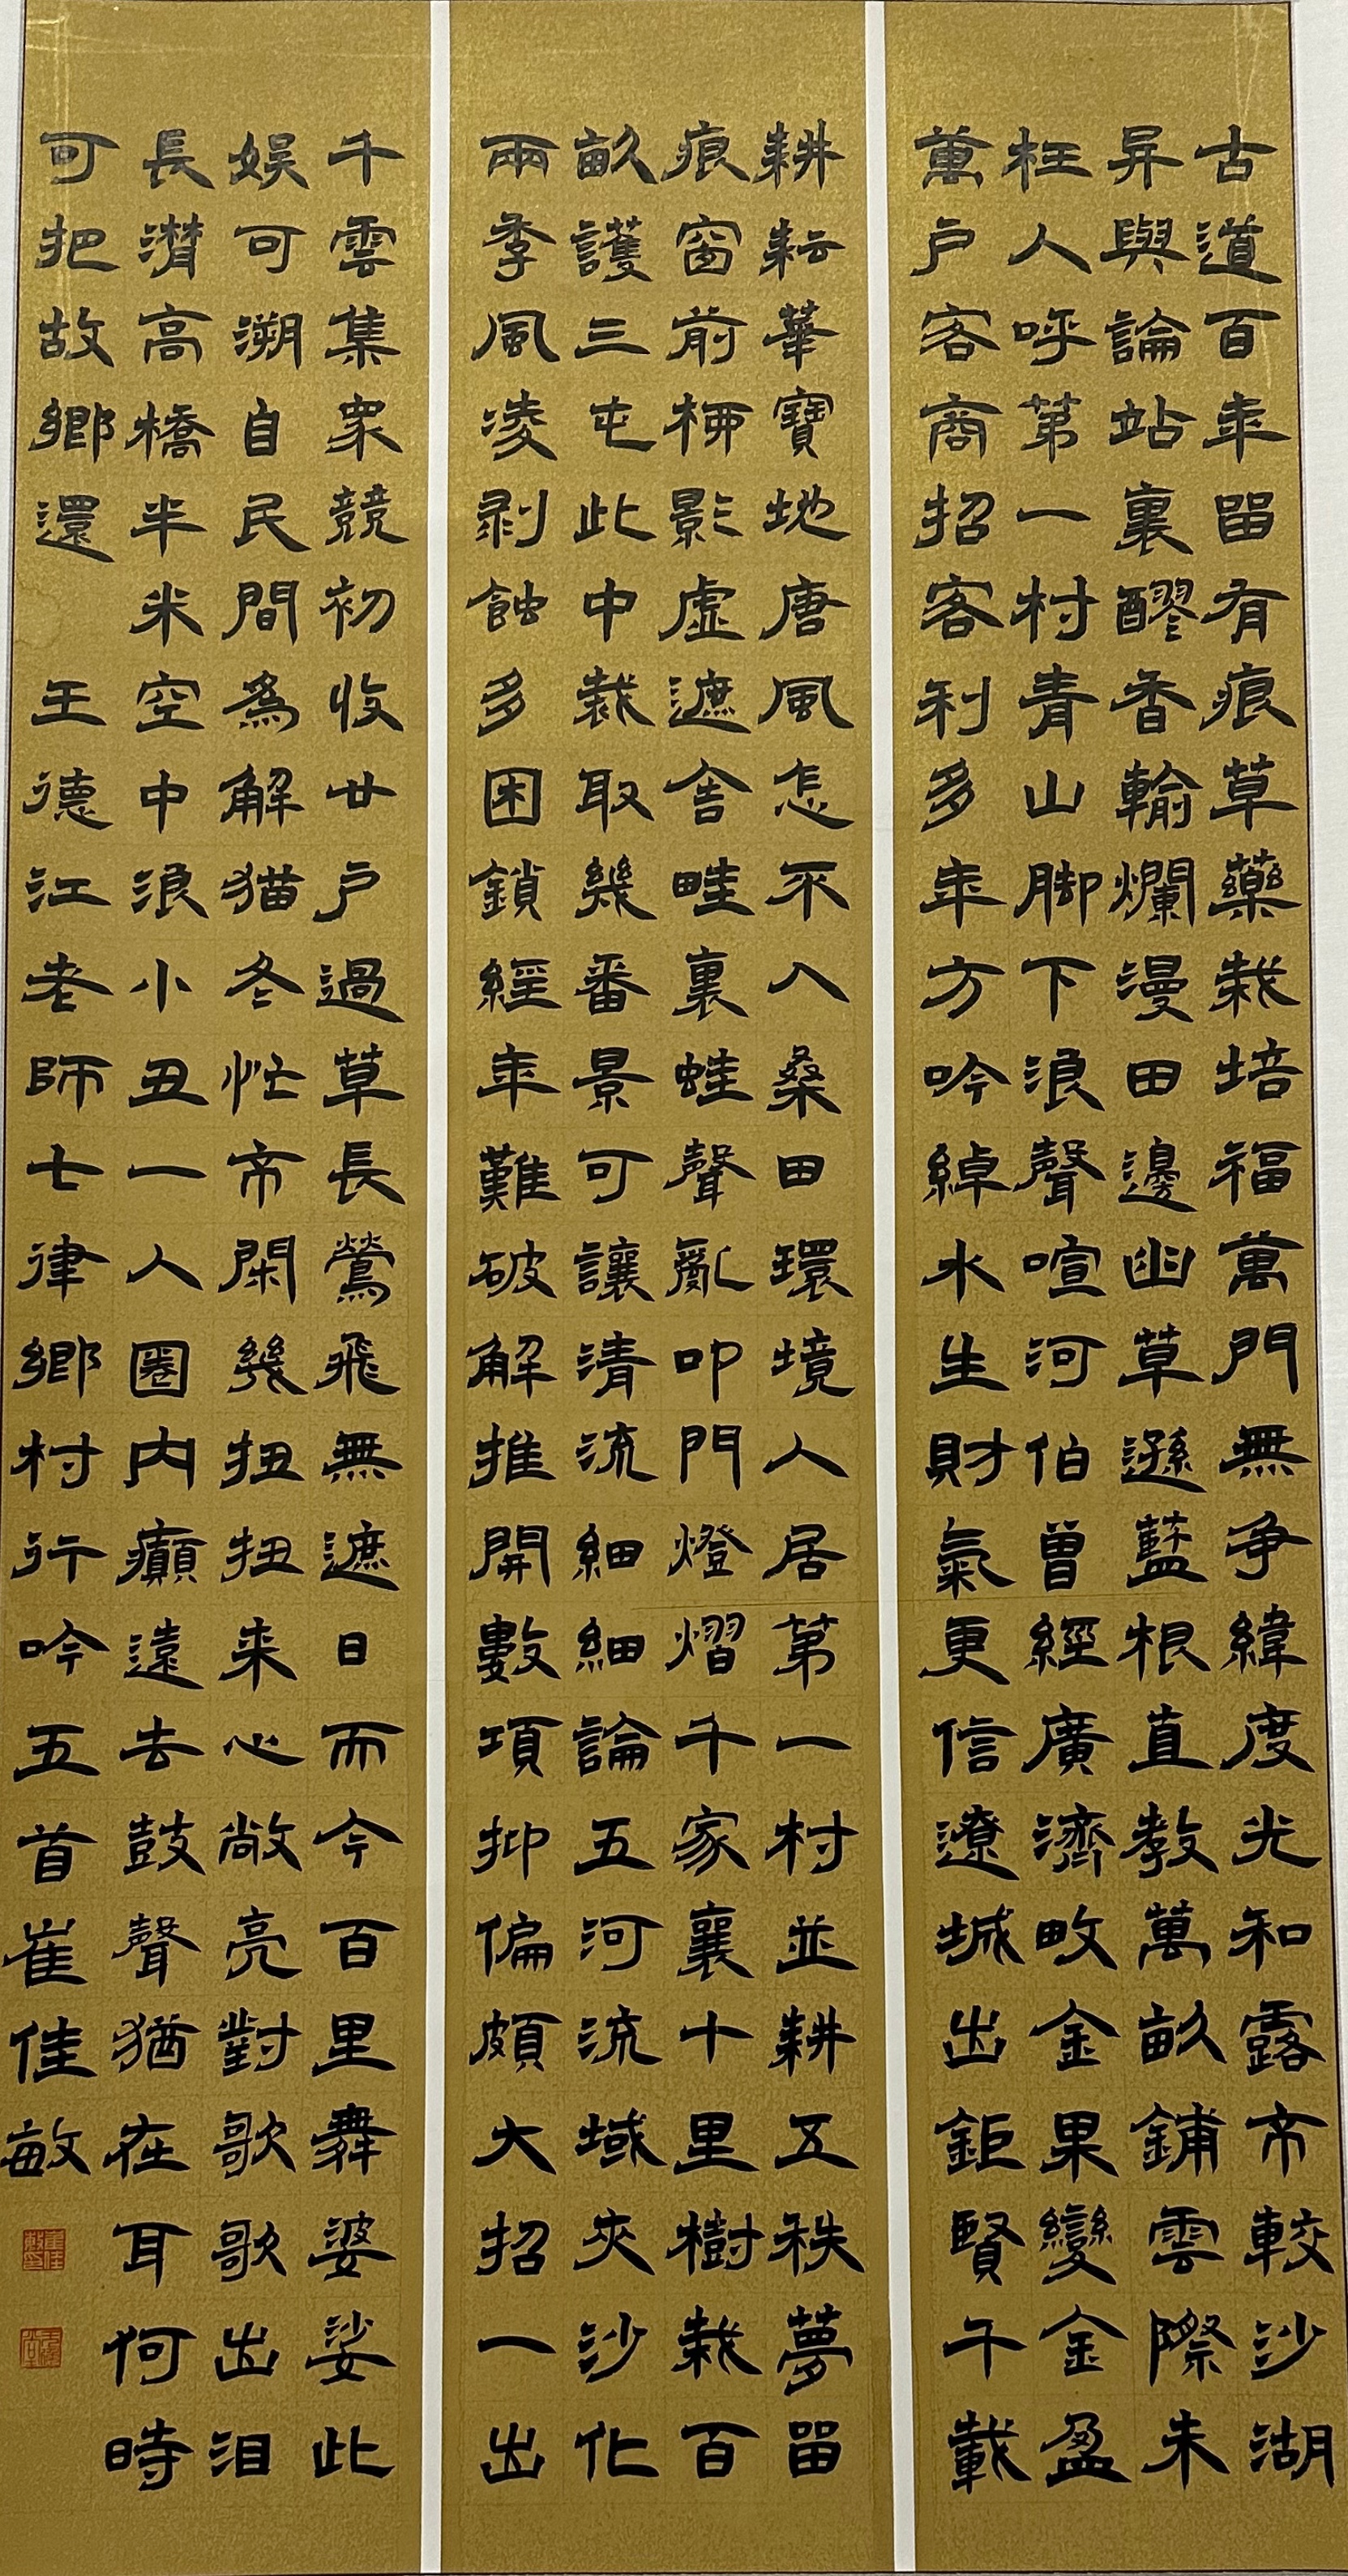 古道百年留有痕草藥栽培福萬門無争緯度光和露帝較沙湖
昇與論站裏醪香輸爛漫田邊幽草遜藍根直教萬畝鋪雲際未
枉人呼第一村青山脚下浪聲喧河伯曾經廣濟畋金果變金盈
萬户客商招客利多年方吟綽水生財氣更信遼城出鉅賢千載
耕耘華寶地唐風怎不入桑田環境人居第一村並耕五秩夢留
痕窗前柳影虚遮舍畦裏蛙聲亂叩門燈熠千家襄十里樹栽百
畝護三屯此中裁取幾番景可讓清流細細論五河流域夾沙化
兩季風凌剥蝕多困鎖經年難破解推開數項抑偏頗大招一出
千雲集衆競初收廿户過草長鶯飛無遮日而今百里舞婆娑此
娱可溯自民間爲解猫冬忙帝閑幾扭扭来心敞亮對歌歌出泪
長潸高橋半米空中浪小丑一人圈内癲遠去鼓聲猶在耳何時
可把故鄉還 王德江老師七律鄉村行吟五首崔佳敏